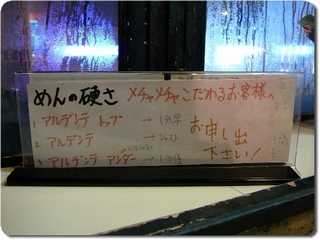 めんの硬さ メチャメチャこだわるお客様へ
1 アルデンテ トップ → 1分早
2 アルデンテ → ジャスト
3 アルデンテ アンダー → 1分後
お申し出
下さい!